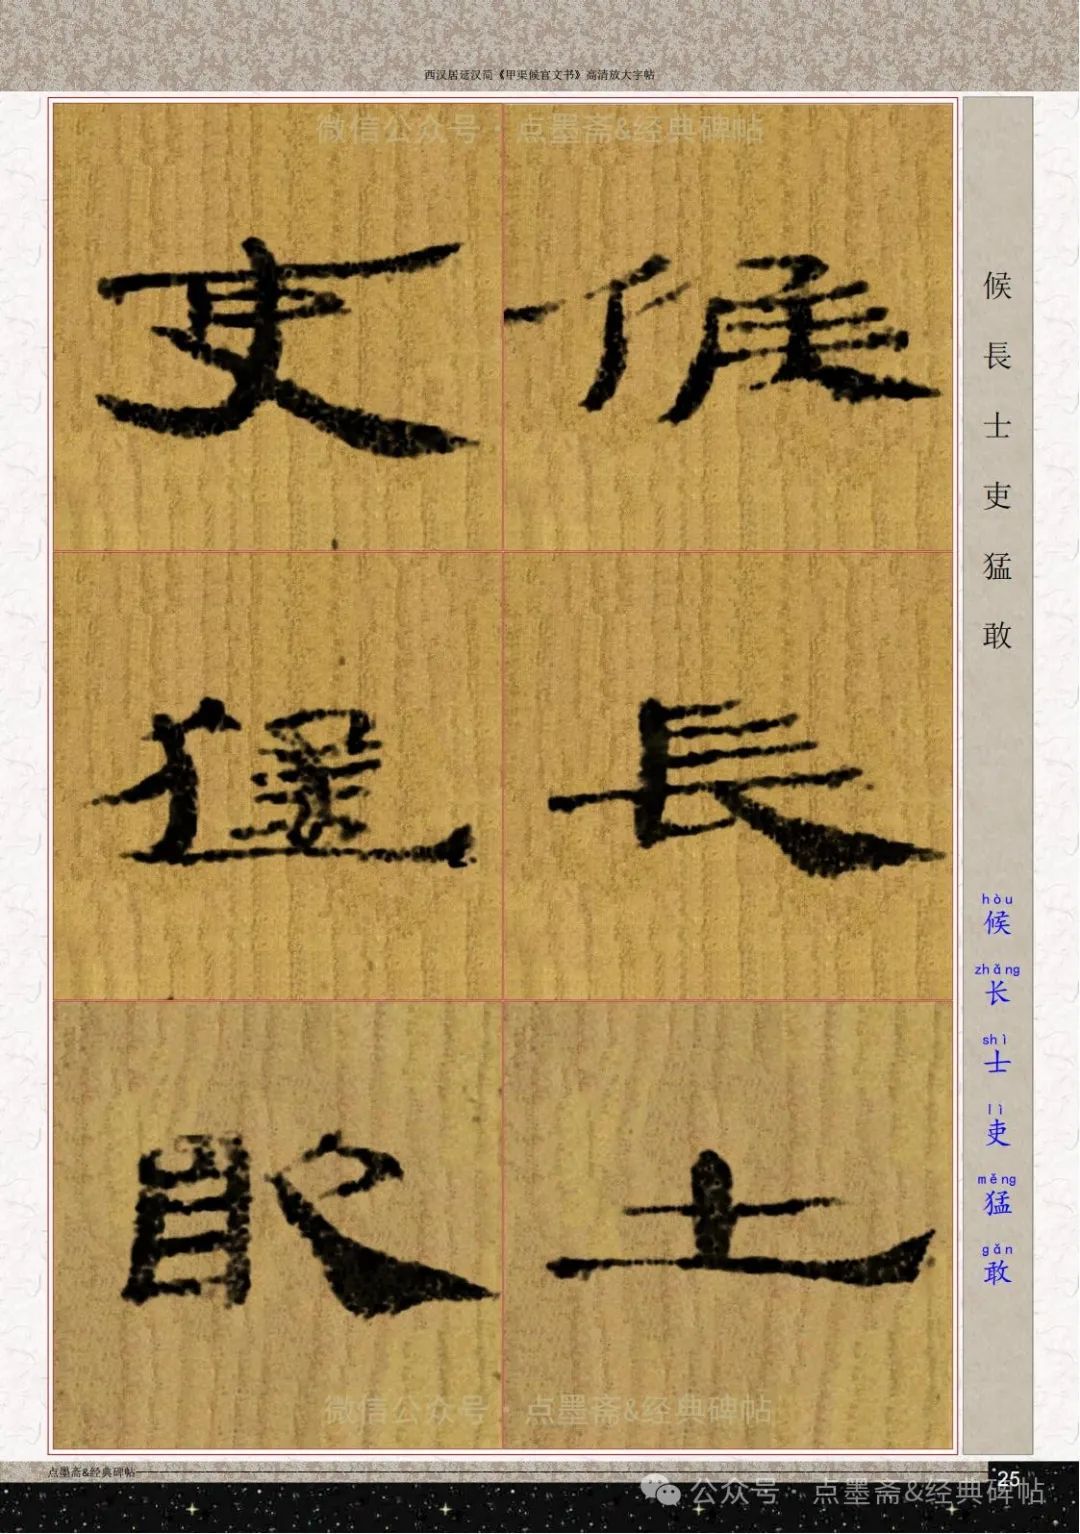 西汉居延汉简《甲渠候官文书》高清放大字帖
微信公众号·点墨斋&经典碑帖
候
長
士
吏
猛
敢
候長士吏猛敢
hòu
候
zhǎng
长
shì
士
lì
吏
měng
猛
gǎn
敢
微信公众号·点墨斋&经典碑帖
点墨斋&经典碑帖
25
公众号·点墨斋&经典碑帖